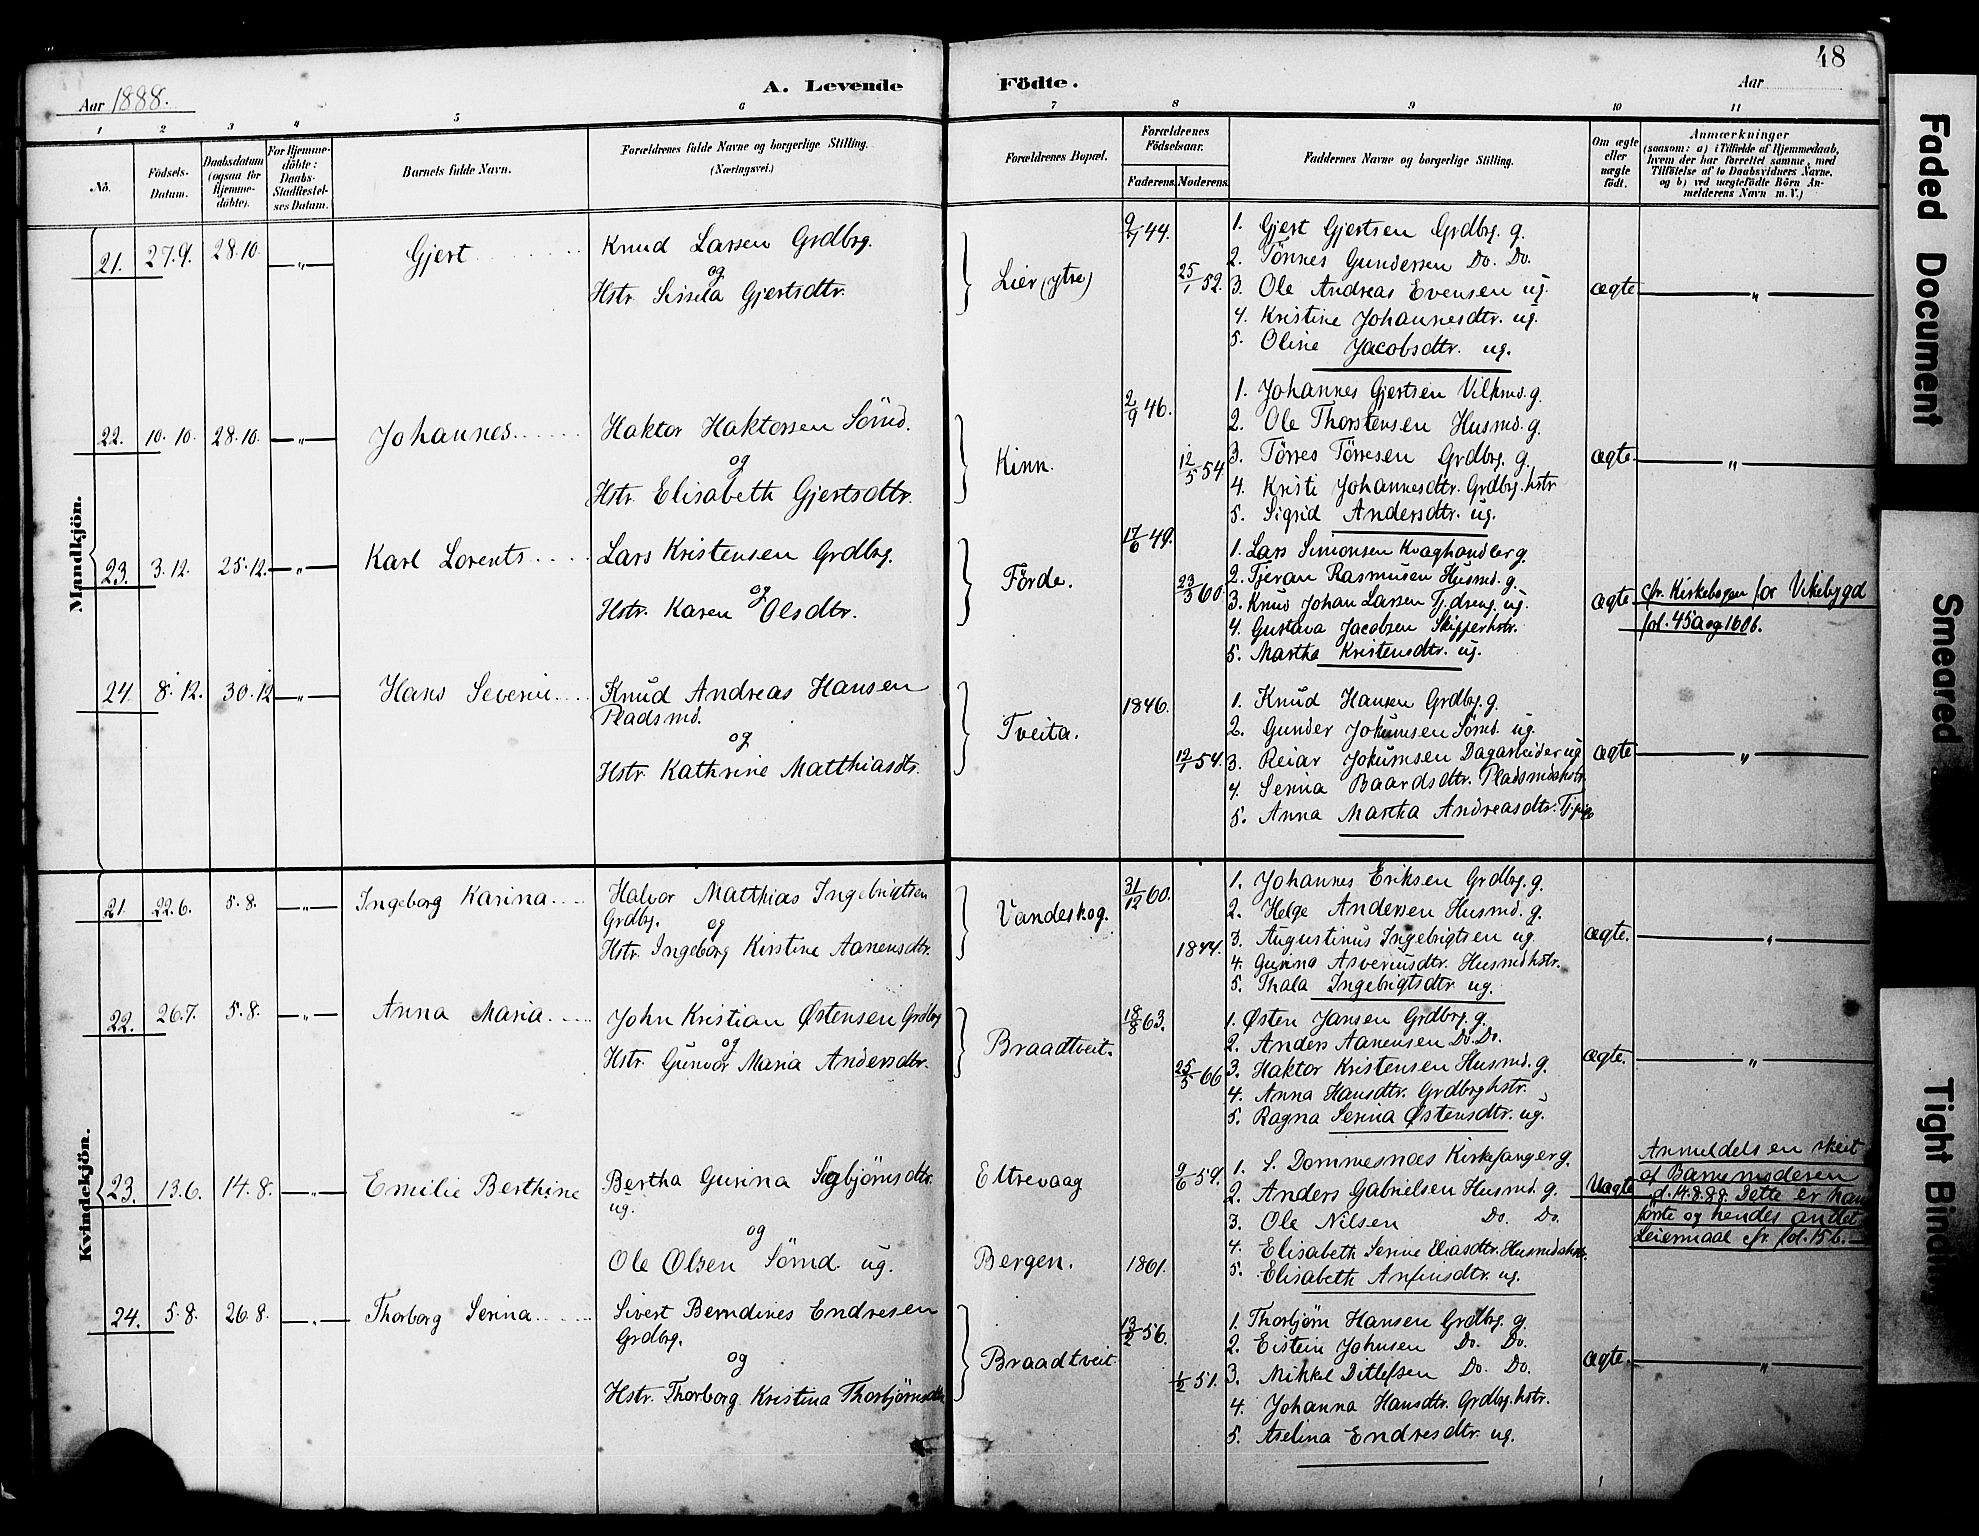 48
Aar 1888.
A. Levende Födte.
Aar
1 2 3 4 5 6 7 8 9 10 11
No.
Födsels-Datum.
Daabsdatum (ogsaa for Hjemme-döbte).
For Hjemme-döbte: Daabs-Stadfæstel-ses Datum.
Barnets fulde Navn.
Forældrenes fulde Navne og borgerlige Stilling.
(Næringsvei.)
Forældrenes Bopæl.
Forældrenes Födselsaar.
Faderens. Moderens.
Faddernes Navne og borgerlige Stilling.
Om ægte eller uægte födt.
Anmærkninger
(saasom: a) i Tilfælde af Hjemmedaab,
hvem der har forrettet samme, med
Tilföielse af to Daabsvidners Navne,
og b) ved uægtefödte Börn An-
melderens Navn m.V.)
Mandkjön.
21. 27.9. 28.10. — " — Gjert
Knud Larsen Grdbrg.
og
Hstr. Sissela Gjertsdtr.
Lier (ytre)
9/7 44.
25/1 52.
1. Gjert Gjertsen Grdbrg. g.
2. Tönnes Gundersen Do. Do.
3. Ole Andreas Evensen ug.
4. Kristine Johannesdtr. ug.
5. Oline Jacobsdtr. ug.
ægte — " —
22. 10.10. 28.10. — " — Johannes
Haktor Haktorsen Sömd.
og
Hstr. Elisabeth Gjertsdtr.
Kinn.
2/9 46.
12/5 54
1. Johannes Gjertsen Vilkmd. g.
2. Ole Thorstensen Husmd. g.
3. Törres Törresen Grdbrg. g.
4. Kristi Johannesdtr. Grdbrg.hstr.
5. Sigrid Andersdtr. ug.
ægte. — " —
23. 3.12. 25.12. — " — Karl Lorents
Lars Kristensen Grdbrg.
og
Hstr. Karen Olsdtr.
Förde.
17/6 49.
23/3 60
1. Lars Simonsen Kvaghandler g.
2. Tjeran Rasmusen Husmd. g.
3. Knud Johan Larsen Tj.dreng. ug.
4. Gustava Jacobsen Skipperhstr.
5. Martha Kristensdtr. ug.
ægte
cfr. Kirkebogen for Vikebygd
fol. 45a og 160b.
24. 8.12. 30.12 — " — Hans Severin
Knud Andreas Hansen
Pladsmd.
og
Hstr. Kathrine Matthiasdtr.
Tveita.
1846.
12/1 54.
1. Knud Hansen Grdbrg. g.
2. Gunder Jokumsen Sömd. ug.
3. Reiar Jokumsen Dagarbeider ug.
4. Serina Baardsdtr. Pladsmdshstr.
5. Anna Martha Andreasdtr. Tj.pige
ægte — " —
Kvindekjön.
21 22.6. 5.8. — " — Ingeborg Karina
Halvor Matthias Ingebrigtsen
Grdbrg.
og
Hstr. Ingeborg Kirstine Aanensdtr.
Vandeskog.
31/12 60.
1844.
1. Johannes Eriksen Grdbrg. g.
2. Helge Andersen Husmd. g.
3. Augustinus Ingebrigtsen ug.
4. Gurina Asveriusdtr. Husmdhstr.
5. Thala Ingebrigtsdtr ug.
ægte. — " —
22. 26.7. 5.8. — " — Anna Maria
John Kristian Østensen Grdbrg
og
Hstr. Gunvor Maria Andersdtr.
Braadtveit.
18/8 63.
25/5 66
1. Østen Jansen Grdbrg. g.
2. Anders Aanensen Do. Do.
3. Haktor Kristensen Husmd. g.
4. Anna Hansdtr. Grdbrghstr.
5. Ragna Serina Østensdtr. ug.
ægte. — " —
23. 13.6. 14.8. — " — Emilie Berthine
Bertha Gurina Sigbjörnsdtr.
ug.
og
Ole Olsen Sömd. ug.
Eltrevaag
Bergen.
9/6 59.
1861.
1. S. Dommesnæs Kirkesanger g.
2. Anders Gabrielsen Husmd. g.
3. Ole Nilsen Do. Do.
4. Elisabeth Serine Eliasdtr. Husmdshstr.
5. Elisabeth Anfinsdtr. ug.
Uægte
Anmeldelsen skeet
af Barnemoderen
d. 14.8.88. Dette er hans
förste og hendes andet
Leiermaal cfr. fol. 15b.
24. 5.8. 26.8. — " — Thorborg Serina
Sivert Berndines Endresen
Grdbrg.
og
Hstr. Thorborg Kristina Thorbjörnsdtr
Braadtveit.
13/2 56.
1/2 51.
1. Thorbjörn Hansen Grdbrg. g.
2. Eistein Johnsen Do. Do.
3. Mikkel Ditlefsen Do. Do.
4. Johanna Hansdtr. Grdbrg.hstr.
5. Aselina Endresdtr. ug.
ægte. — " —
Faded Document
Smeared
Tight Binding